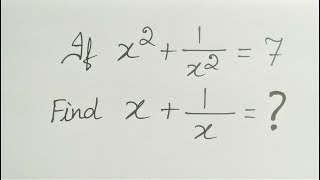 If x² + 1/x² = 7
Find x + 1/x = ?